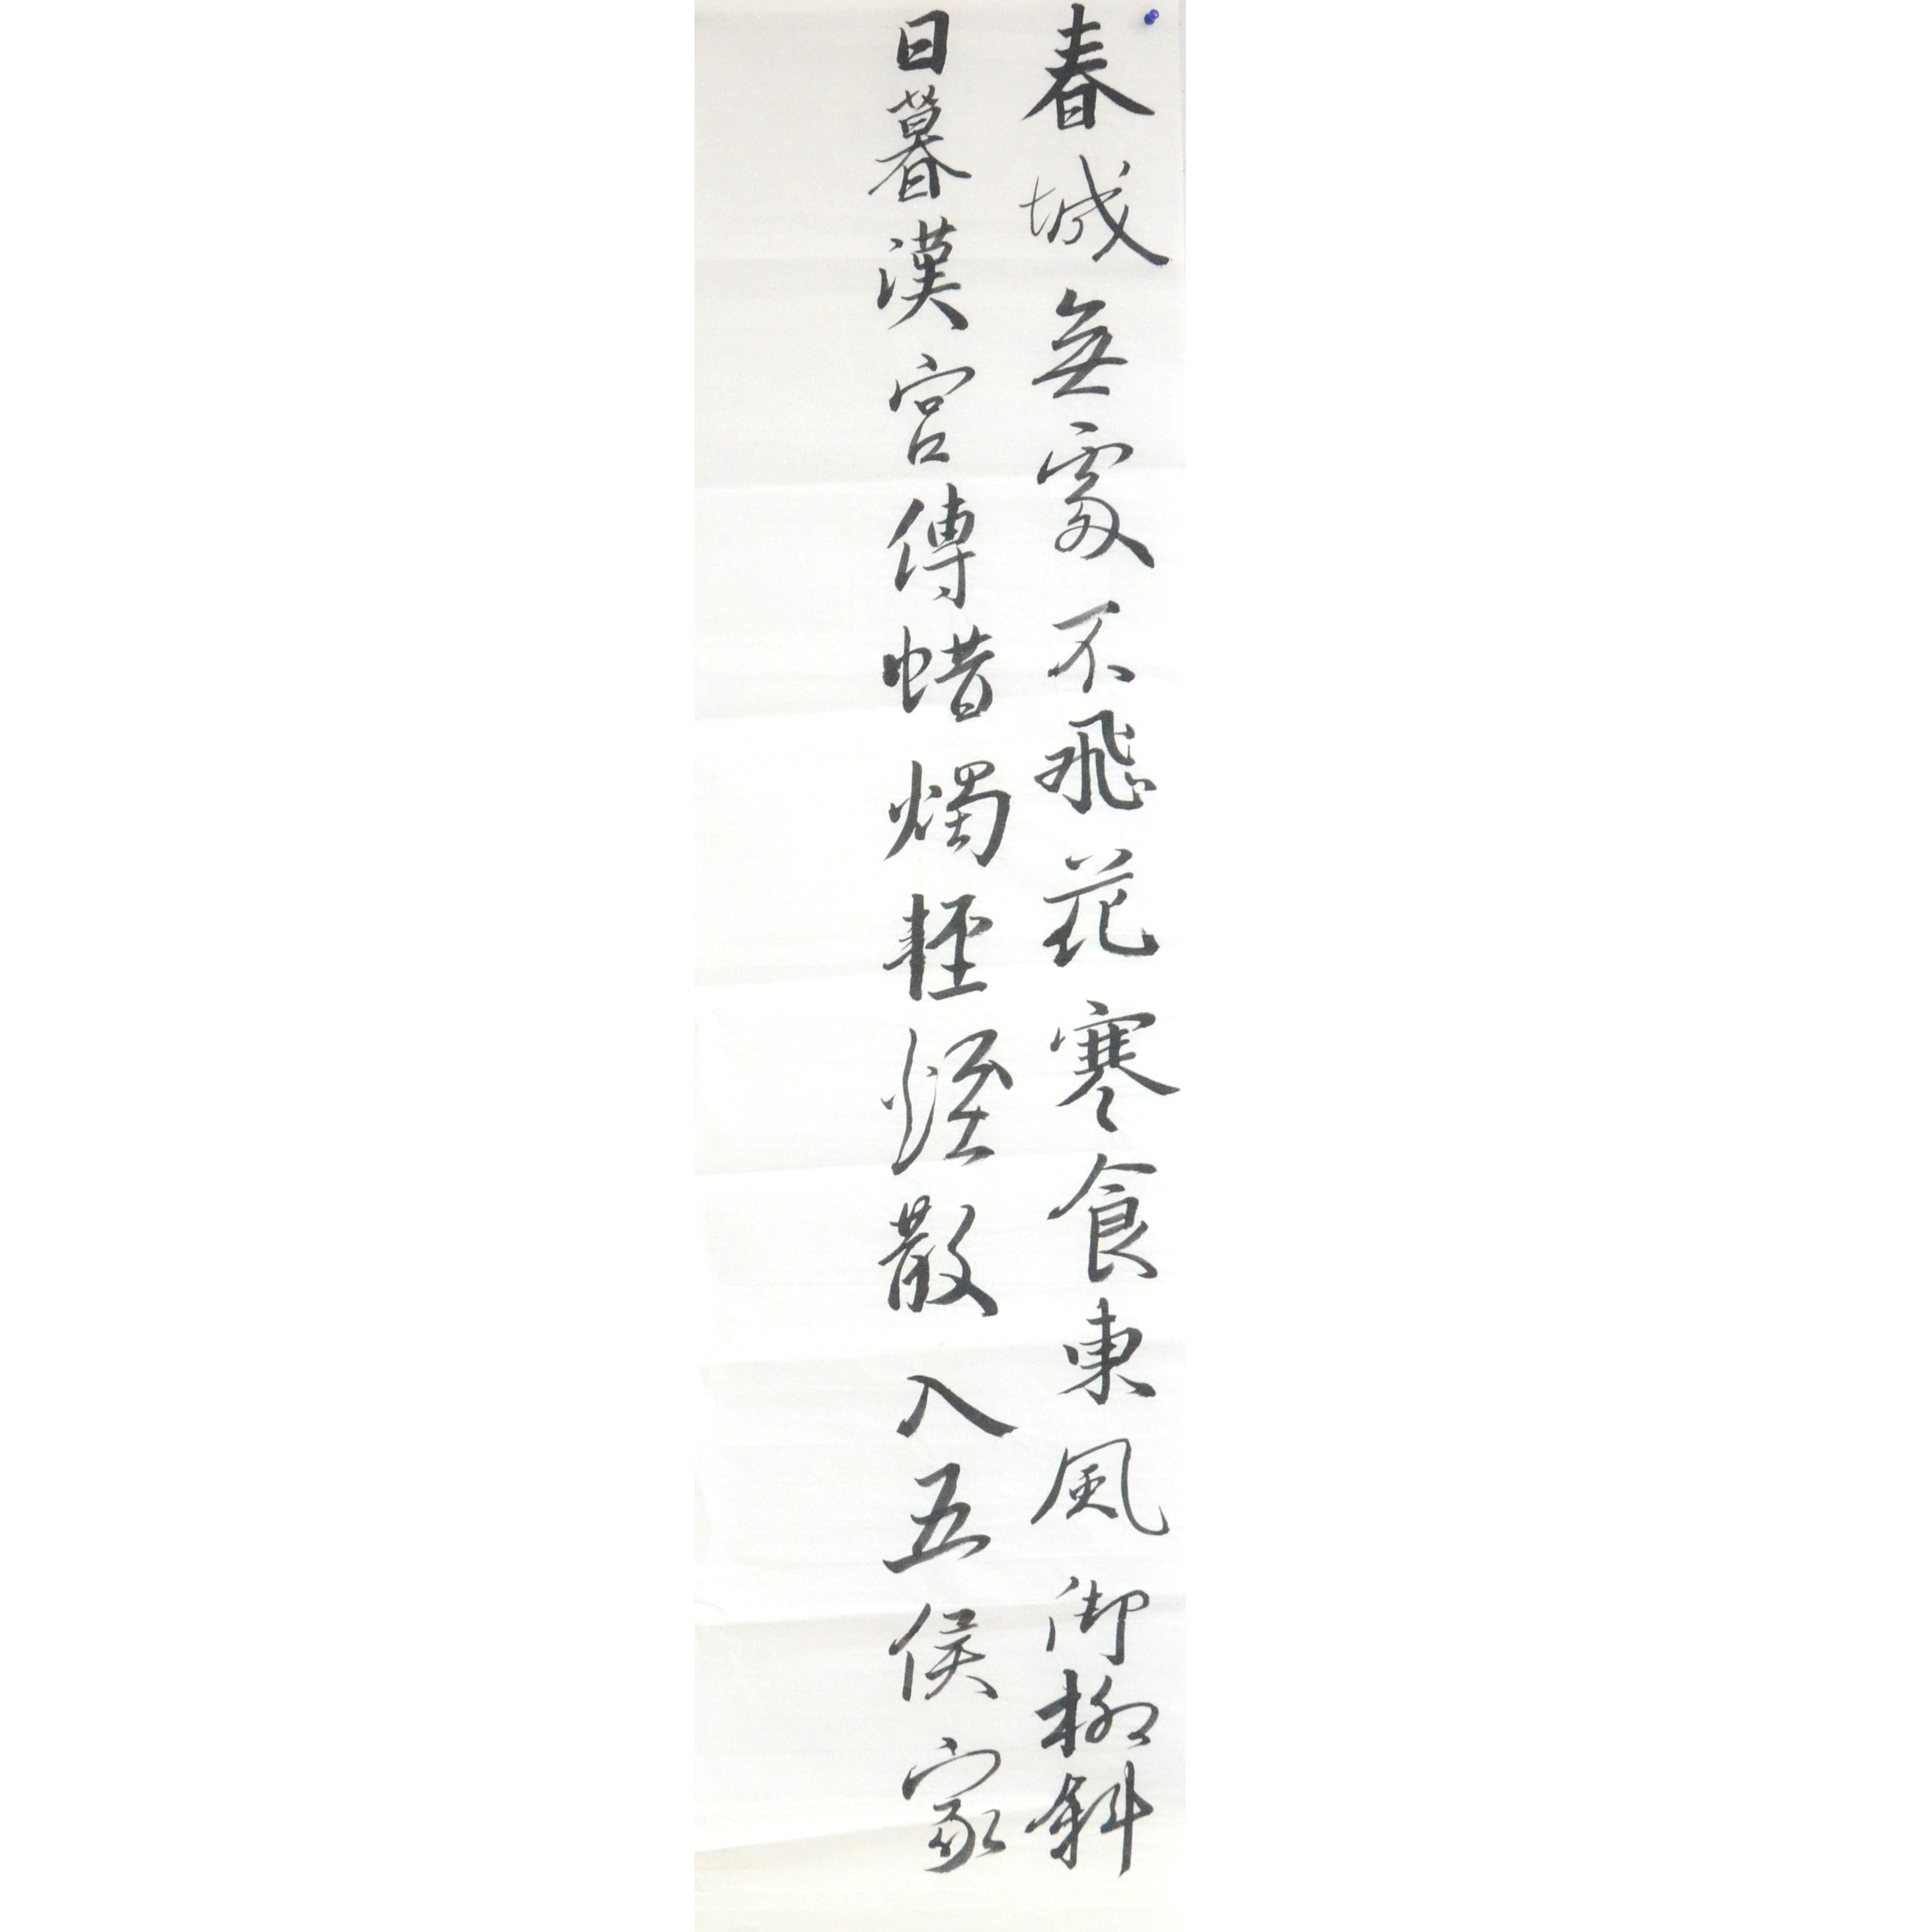 春城無處不飛花寒食東風御柳斜
日暮漢宮傳蜡燭輕煙散入五侯家